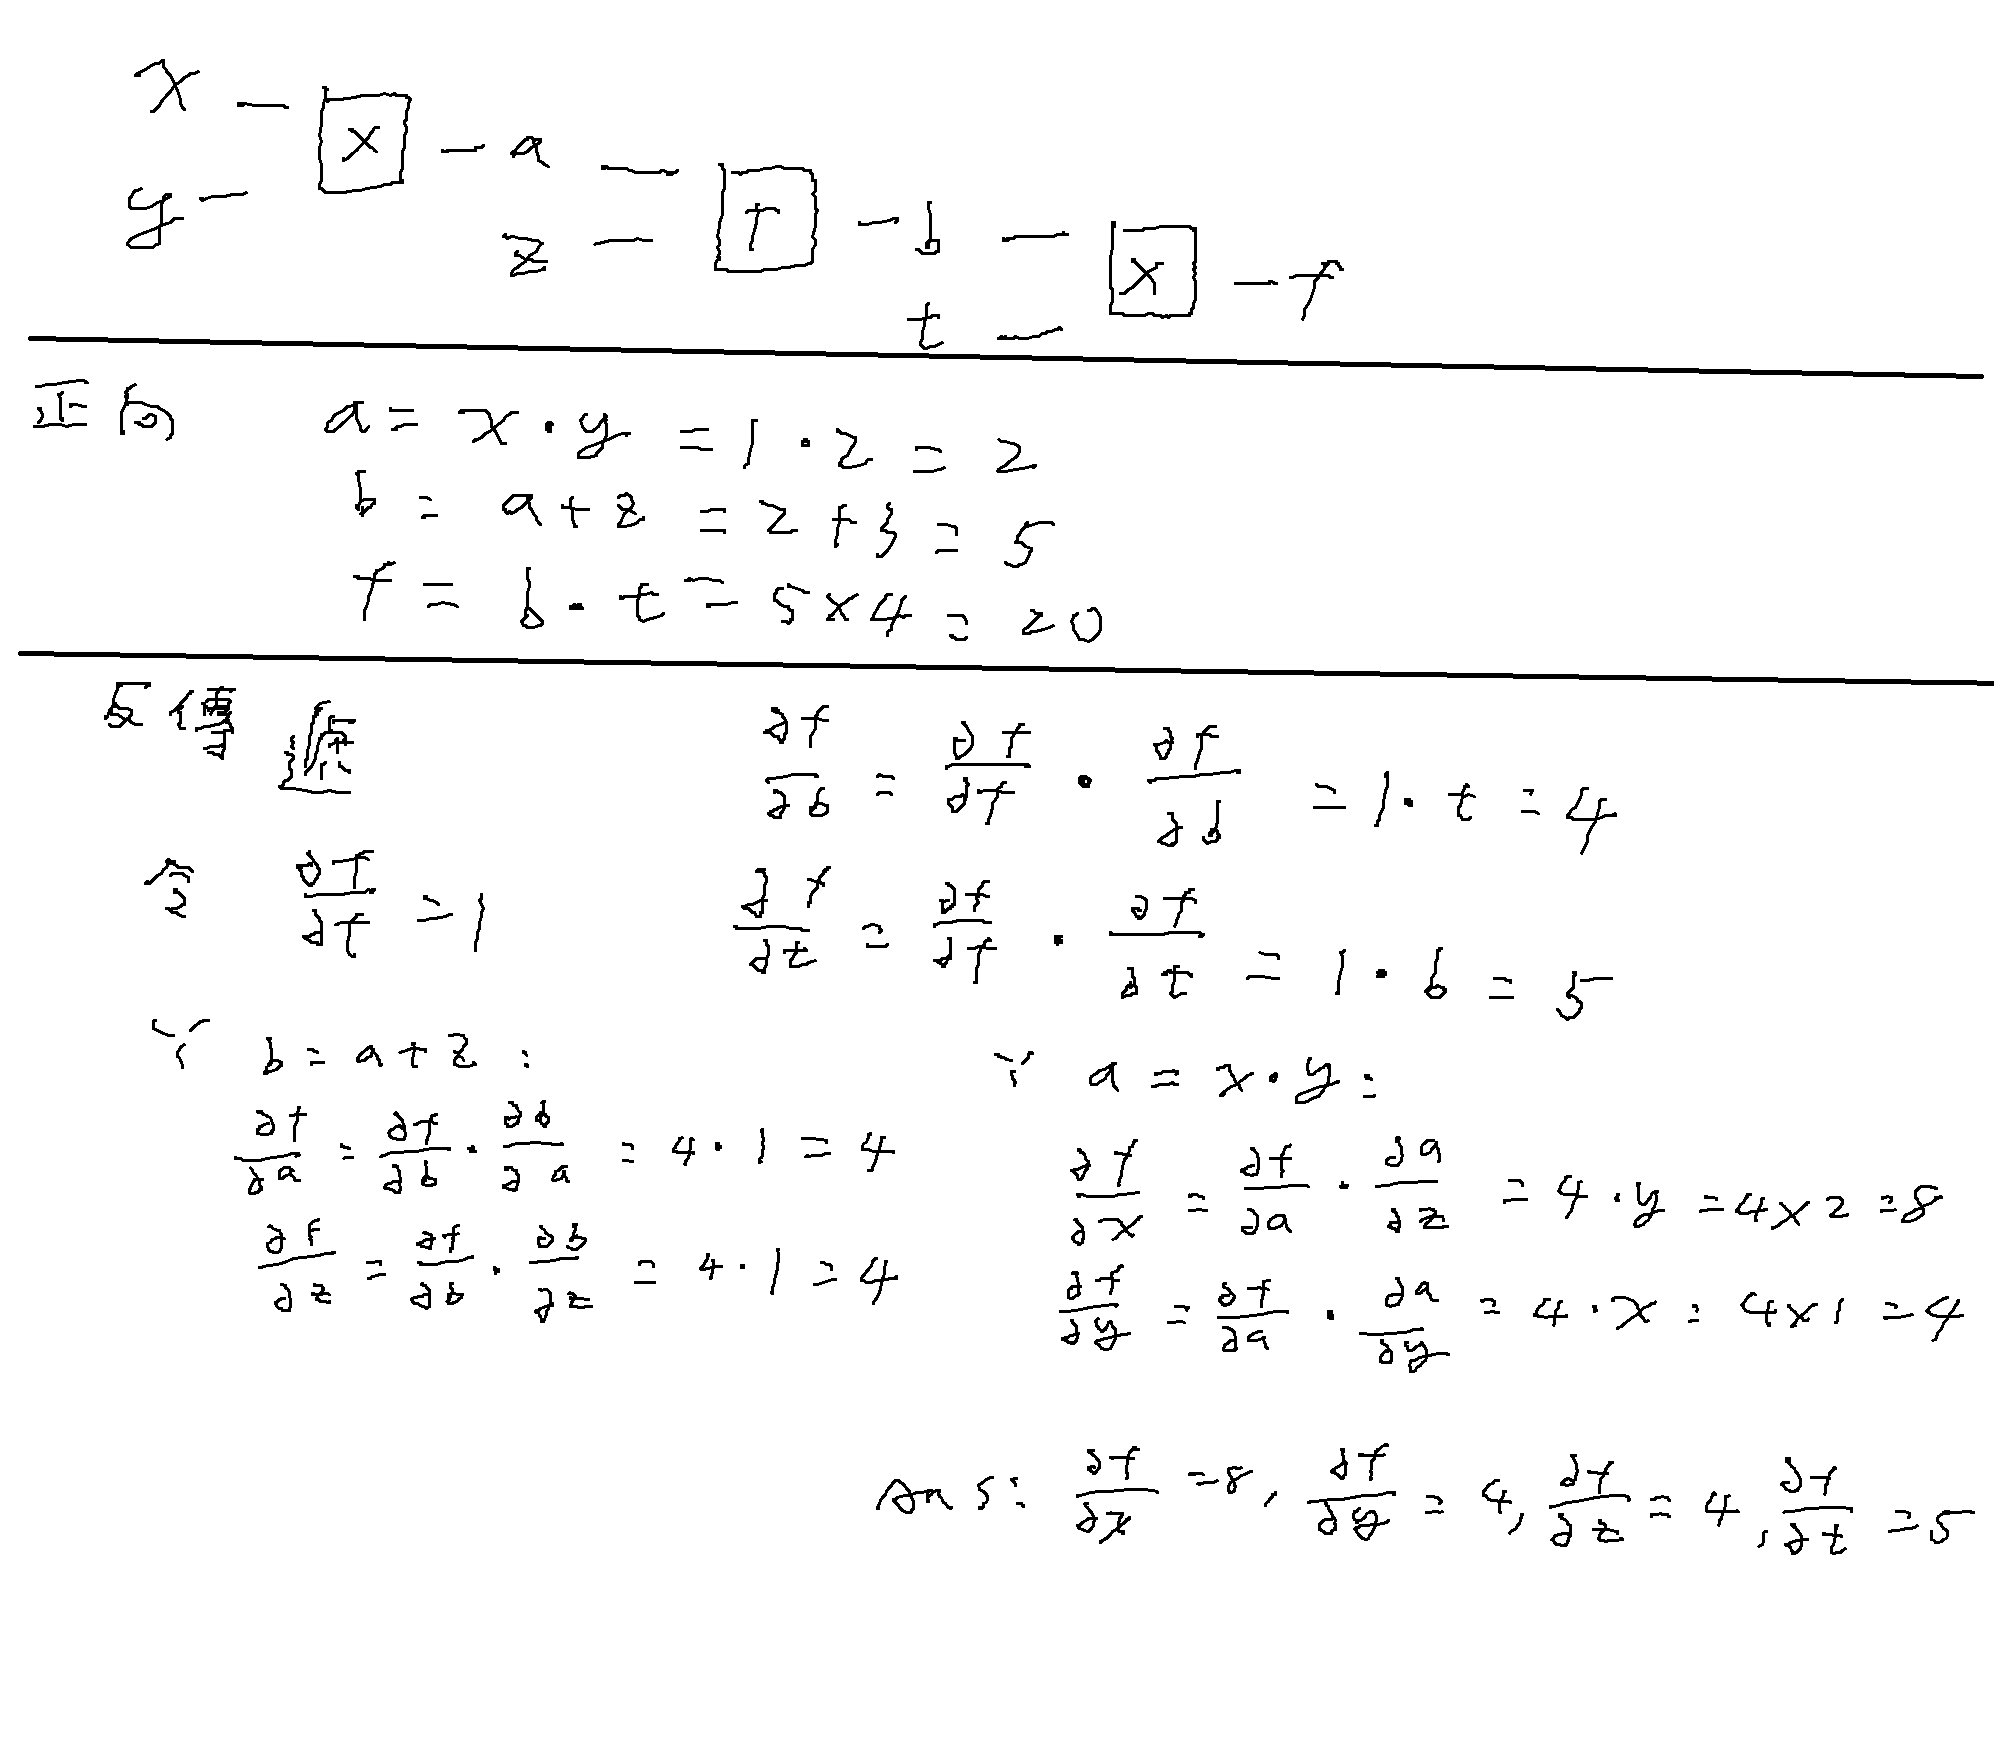 x — [×] — a — [+] — b — [×] — f
y —
z —
t —
正向
a = x · y = 1 · 2 = 2
b = a + z = 2 + 3 = 5
f = b · t = 5 × 4 = 20
反傳遞
∂f/∂b = ∂f/∂f · ∂f/∂b = 1 · t = 4
令 ∂f/∂f = 1
∂f/∂t = ∂f/∂f · ∂f/∂t = 1 · b = 5
∵ b = a + z :
∂f/∂a = ∂f/∂b · ∂b/∂a = 4 · 1 = 4
∂f/∂z = ∂f/∂b · ∂b/∂z = 4 · 1 = 4
∵ a = x · y :
∂f/∂x = ∂f/∂a · ∂a/∂z = 4 · y = 4 × 2 = 8
∂f/∂y = ∂f/∂a · ∂a/∂y = 4 · x = 4 × 1 = 4
Ans : ∂f/∂x = 8, ∂f/∂y = 4, ∂f/∂z = 4, ∂f/∂t = 5